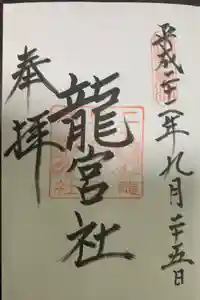 平成二十二年九月二十五日
龍宮社
奉拝